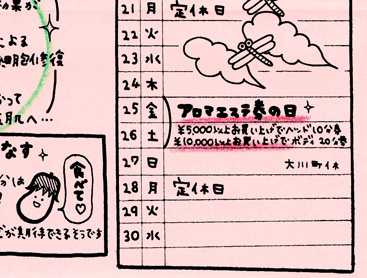 による
細胞修復
って
美肌へ…
なす
食べて♡
が期待できるそうです
21 月 定休日
22 火
23 水
24 木
25 金 アロマエステ券の日
26 土 ¥5,000以上お買い上げでハンド10分券
¥10,000以上お買い上げでボディ20分券
27 日 大川町休
28 月 定休日
29 火
30 水